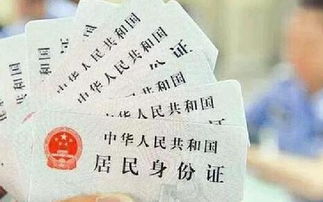 中华人民共和国
中华人民共和国
中华人民共和国
公 证
中华人民共和国
份 证
中华人民共和国
居 民 身 份 证